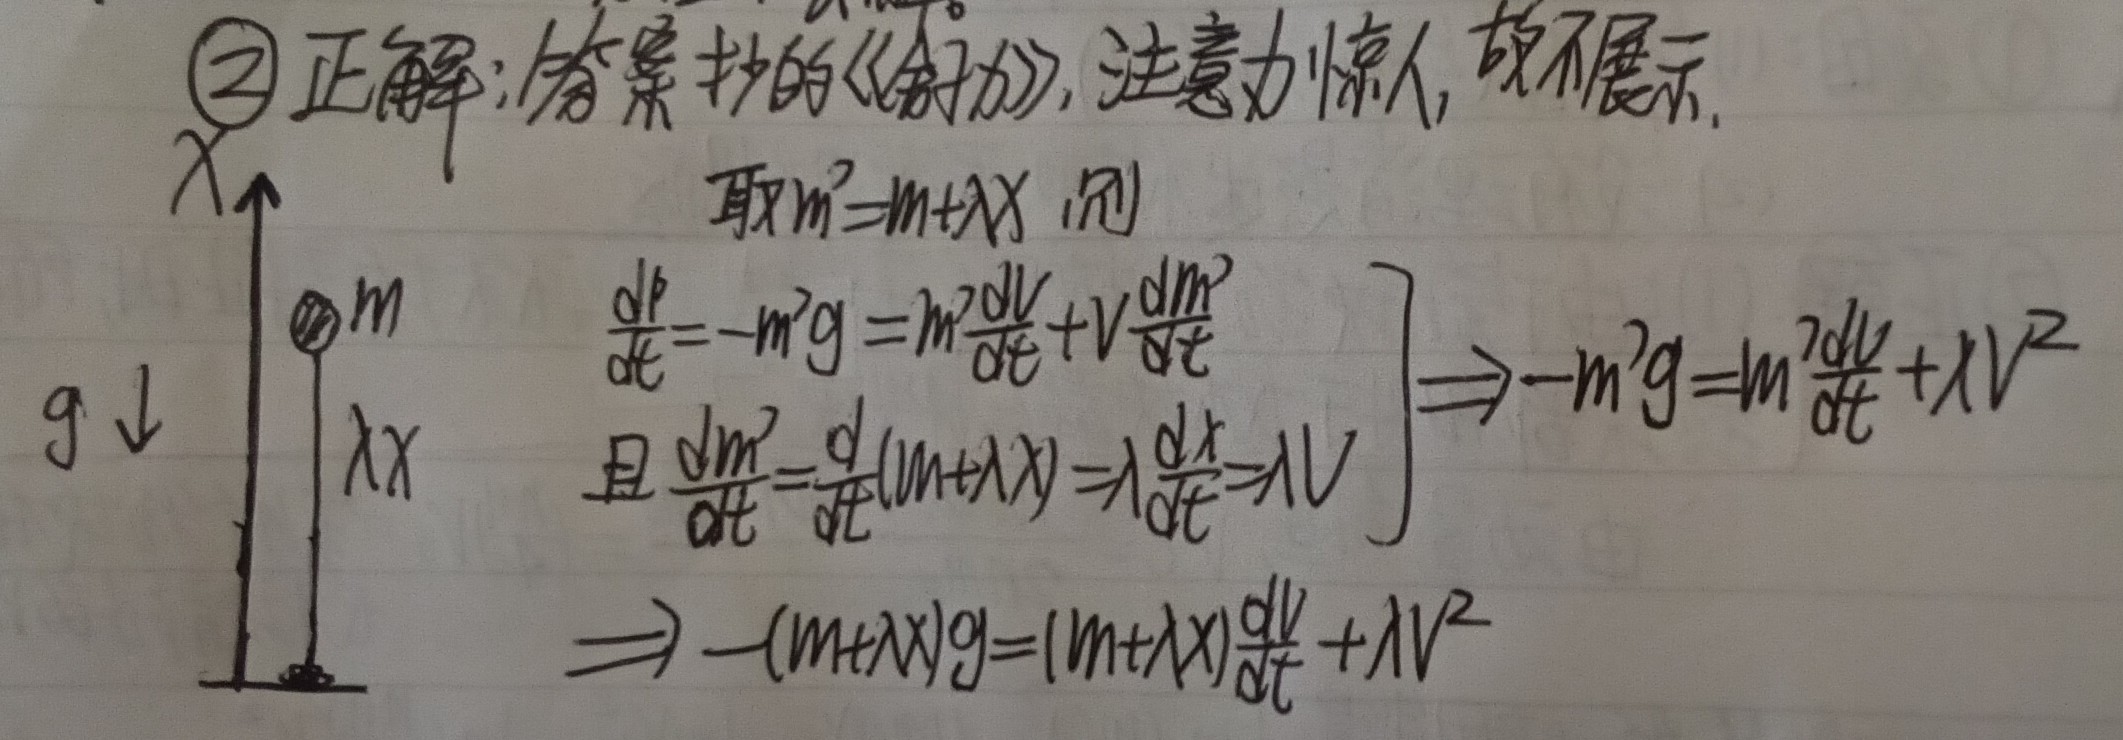 ② 正解:答案抄的《舒力》,注意力惊人,故不展示.
取m'=m+λx,则
x
m
g↓
λx
dp/dt=-m'g=m'dv/dt+vdm'/dt
且dm'/dt=d/dt(m+λx)=λdx/dt=λv
⇒-m'g=m'dv/dt+λv²
⇒-(m+λx)g=(m+λx)dv/dt+λv²